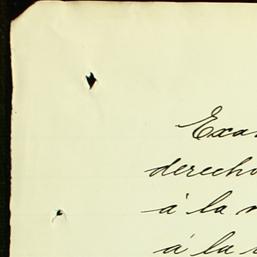 Exa
derecho
á la
á la